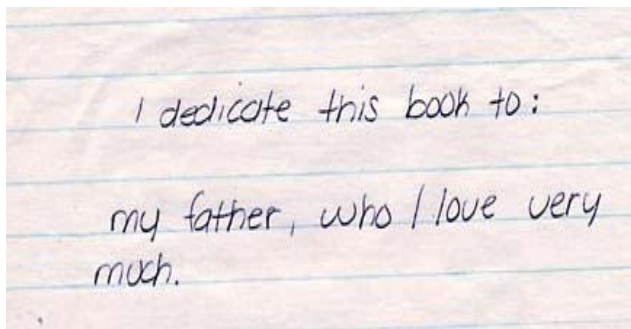 I dedicate this book to:
my father, who I love very
much.